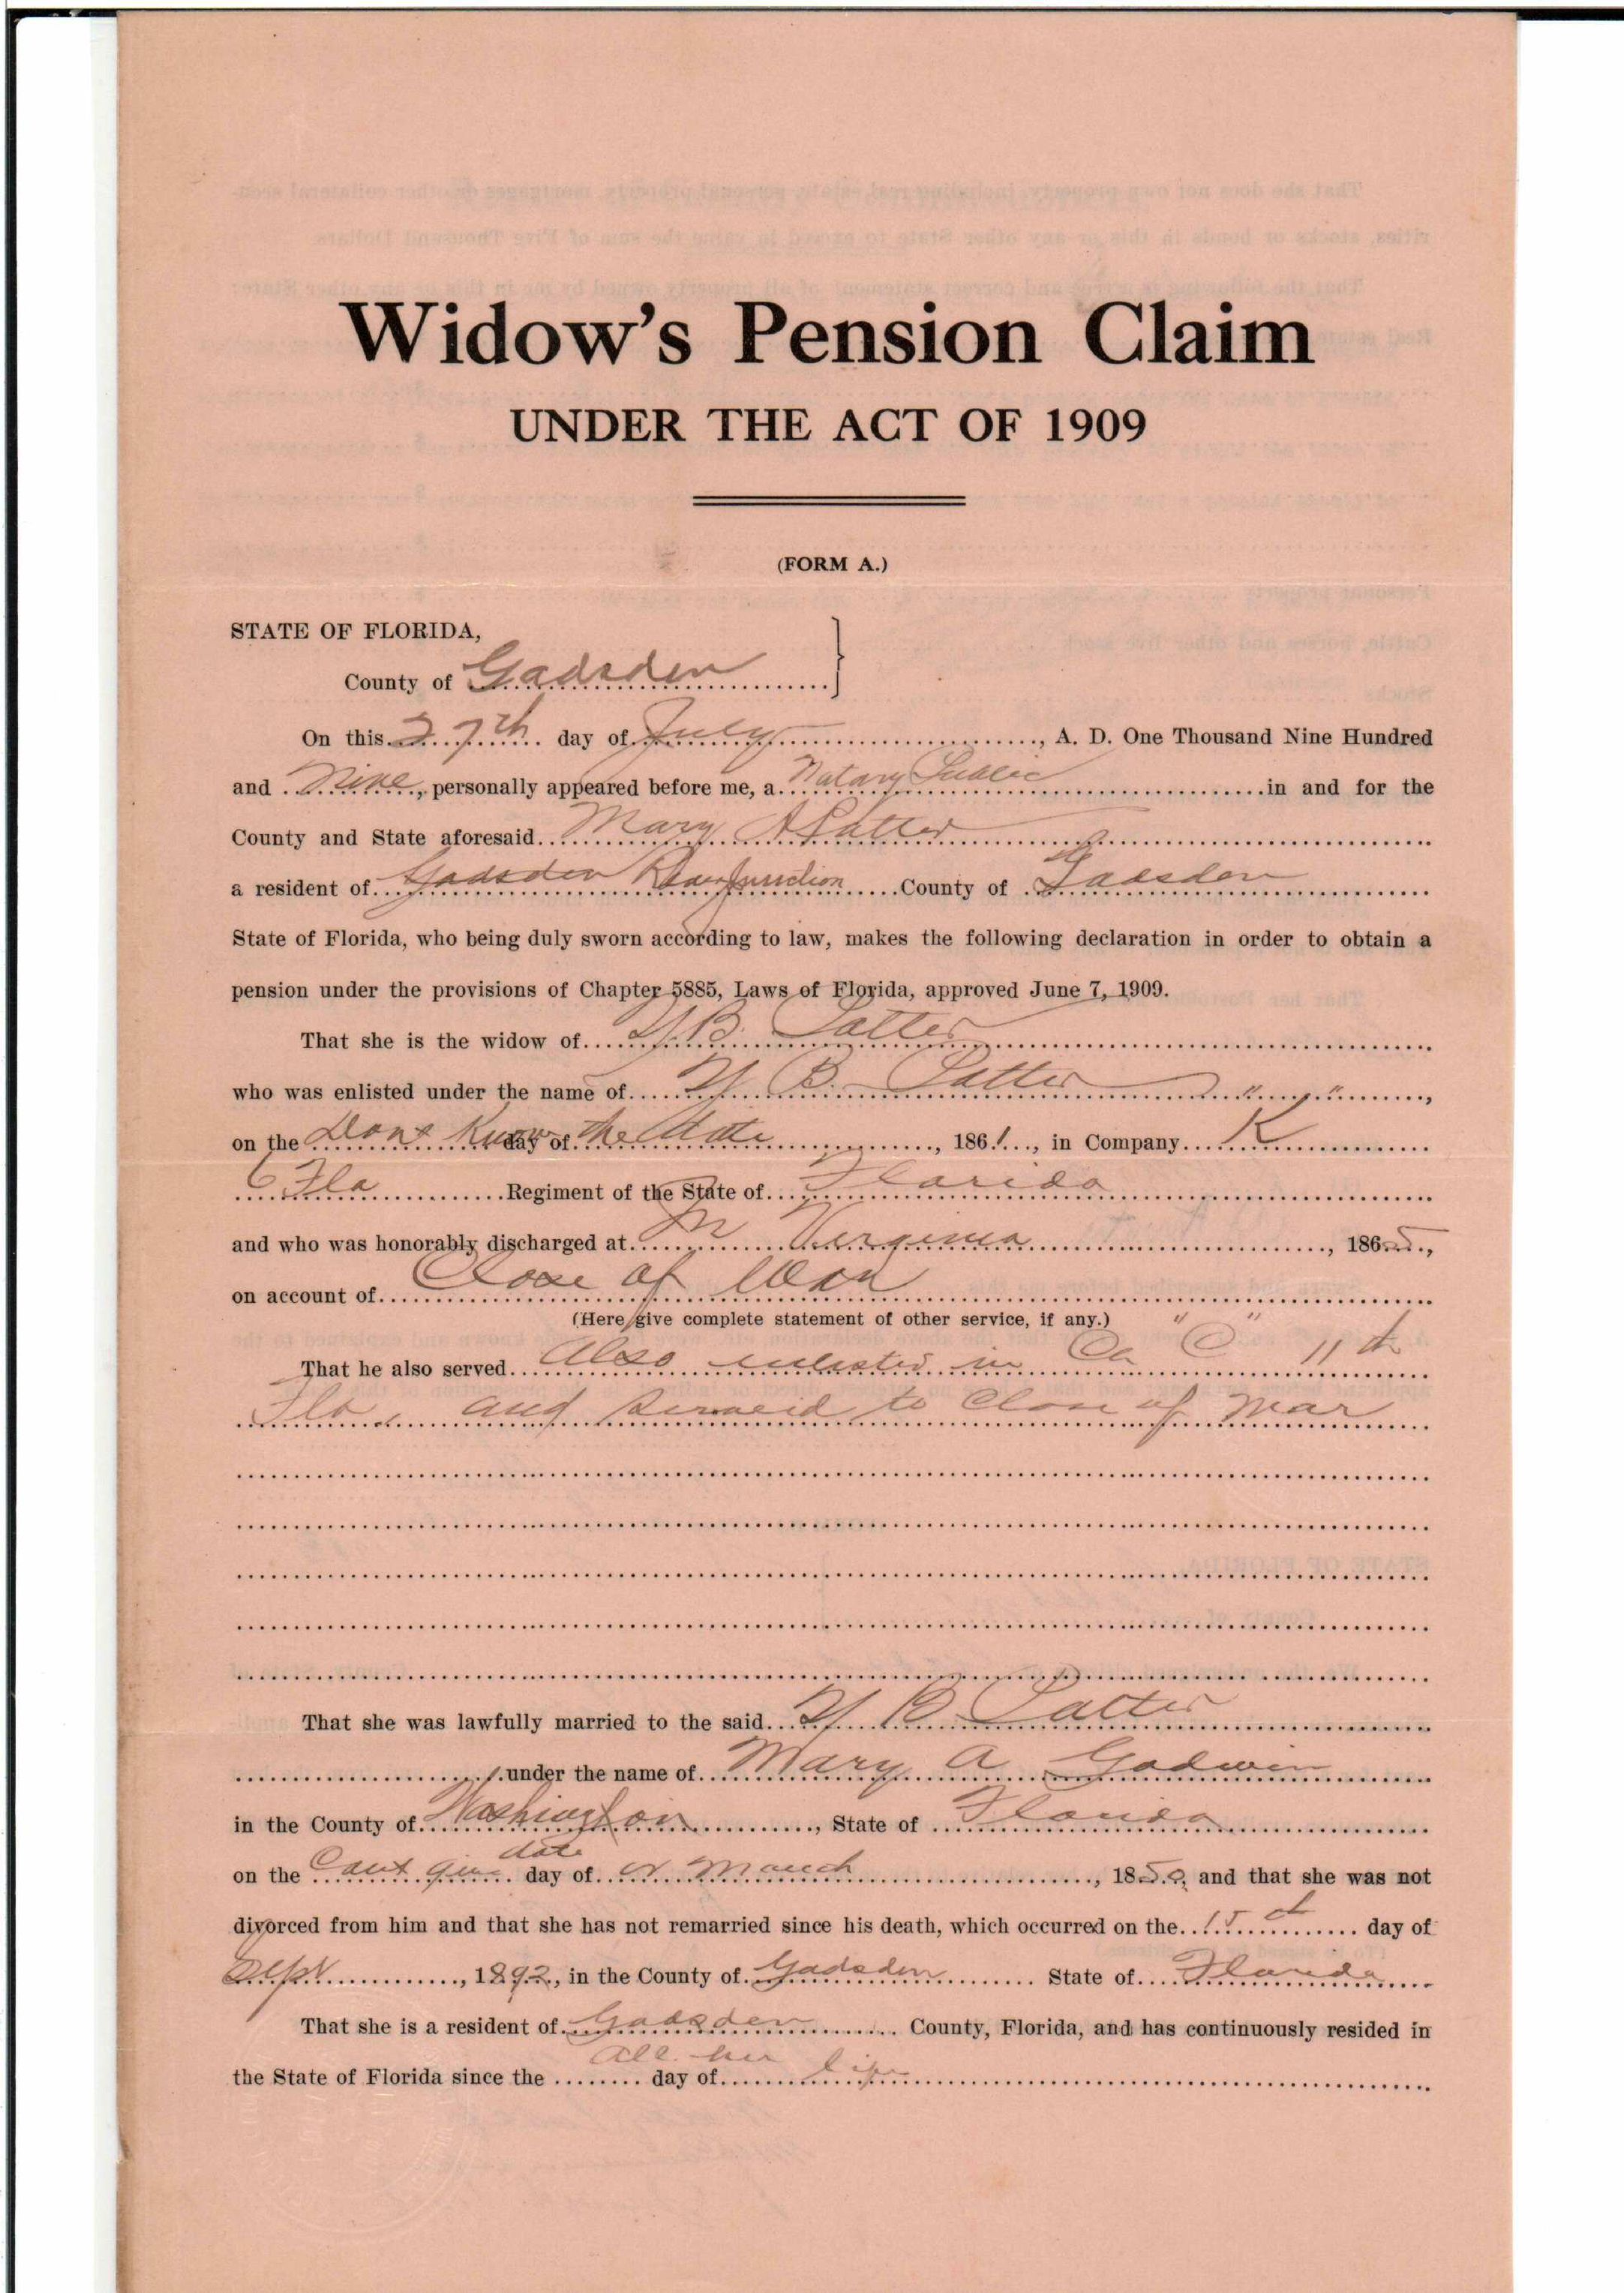 Widow's Pension Claim
UNDER THE ACT OF 1909
(FORM A.)
STATE OF FLORIDA,
County of Gadsden
On this 27th day of July, A. D. One Thousand Nine Hundred
and Nine, personally appeared before me, a Notary Public in and for the
County and State aforesaid Mary A
a resident of Gadsden River Junction County of Gadsden
State of Florida, who being duly sworn according to law, makes the following declaration in order to obtain a
pension under the provisions of Chapter 5885, Laws of Florida, approved June 7, 1909.
That she is the widow of B.
who was enlisted under the name of B.
on the Dont Know day of the date, 1861, in Company "K"
6 Fla Regiment of the State of Florida
and who was honorably discharged at in Virginia, 1865,
on account of Close of War
(Here give complete statement of other service, if any.)
That he also served Also enlisted in Co "C" 11th
Fla and served to Close of War
That she was lawfully married to the said B
under the name of Mary A Godwin
in the County of Washington, State of Florida
date
on the Cant give day of March, 185, and that she was not
divorced from him and that she has not remarried since his death, which occurred on the 15 day of
Sept, 1892, in the County of Gadsden State of Florida
That she is a resident of Gadsden County, Florida, and has continuously resided in
the State of Florida since the day of all her life